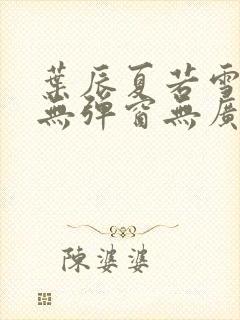 葉辰夏若雪
無彈窗無廣
陳婆婆